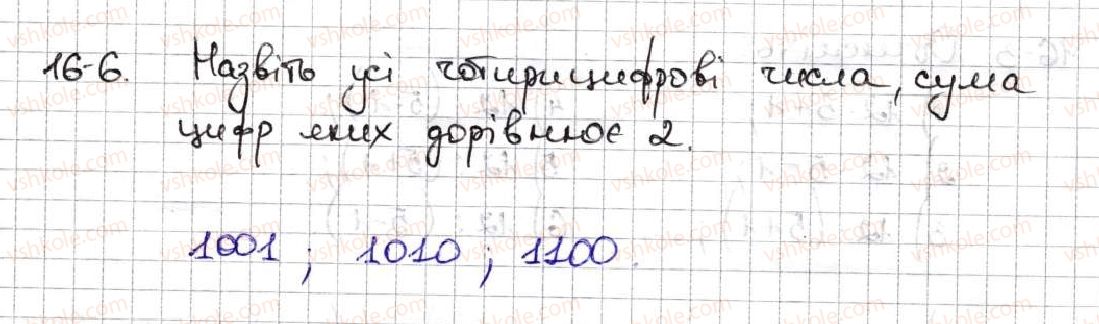 16-6. Назвіть усі чотирицифрові числа, сума
цифр яких дорівнює 2.
1001 ; 1010 ; 1100.